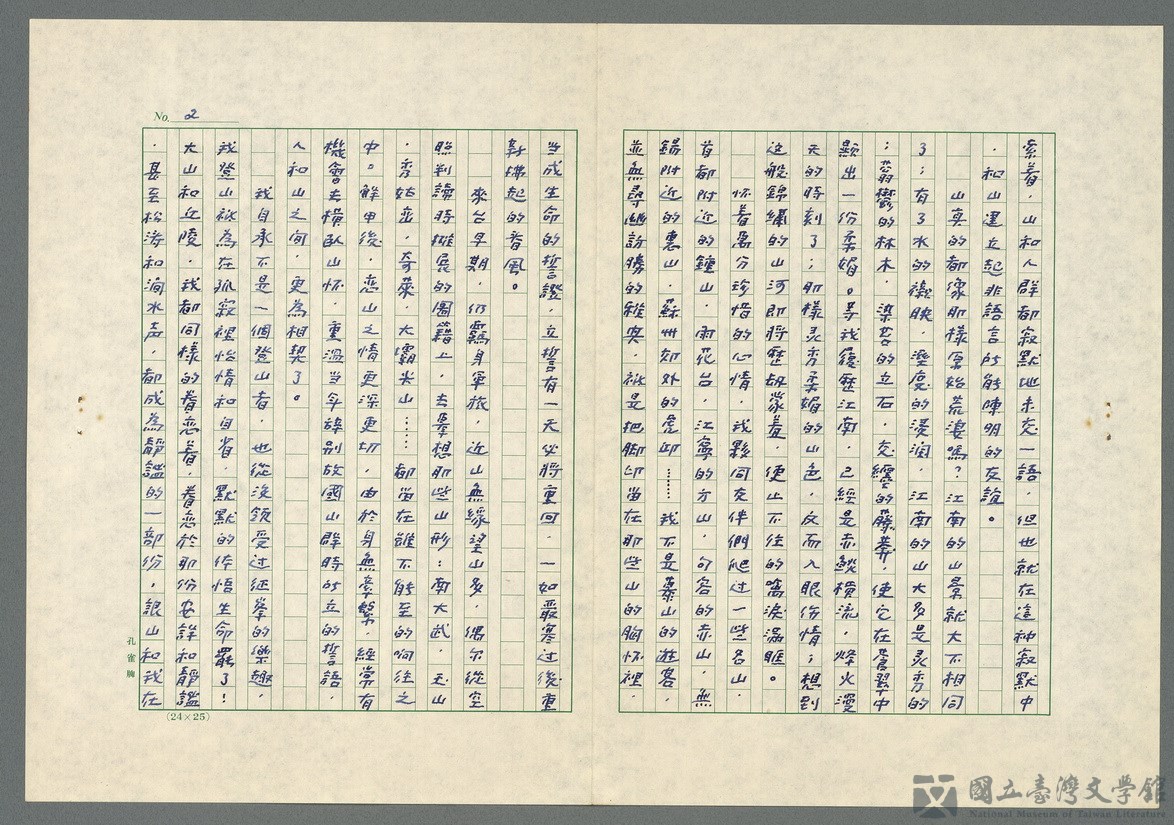 索着,山和人群都寂默地未交一語,但也就在這种寂默中
,和山建立起非語言所能陳明的友誼。
山真的都像那樣原始荒漠嗎?江南的山景就大不相同
了;有了水的襯映,溼度的浸润,江南的山大多是灵秀的
;蓊鬱的林木,染苔的立石,交纏的藤蔓,使它在蒼翠中
顯出一份柔媚。等我履歷江南,已經是赤燄橫流,烽火漫
天的時刻了;那樣灵秀柔媚的山色,反而入眼伤情;想到
这般錦繡的山河即將歷劫蒙羞,便止不住的噙淚滿眶。
怀着萬分珍惜的心情,我夥同友伴們爬过一些名山,
首都附近的鍾山,雨花台,江寧的方山,句容的赤山,無
錫附近的惠山,蘇州郊外的虎邱……我不是慕山的遊客,
並無尋幽訪勝的雅興,祇是把脚印留在那些山的胸怀裡,
No. 2
当成生命的誓證,立誓有一天必將重回,一如嚴寒过後重
新拂起的春風。
來台早期,仍羈身軍旅,近山無緣望山多,偶尔從空
照判讀時攤展的圖籍上,去摹想那些山形:南大武,玉山
,秀姑巒,奇萊,大霸尖山……都留在雖不能至的响往之
中。解甲後,恋山之情更深更切,由於身無牽繫,經常有
機會去橫臥山怀,重溫当年誅別故國山群時所立的誓語,
人和山之间,更為相契了。
我自承不是一個登山者,也從沒領受过征峯的樂趣,
我登山祇為在孤寂裡怡情和自省,默默的体悟生命罷了!
大山和丘陵,我都同樣的眷恋着,眷恋於那份安詳和靜謐
,甚至松涛和澗水声,都成為靜謐的一部份,誤山和我在
孔雀牌
(24×25)
國立臺灣文學館
National Museum of Taiwan Literature